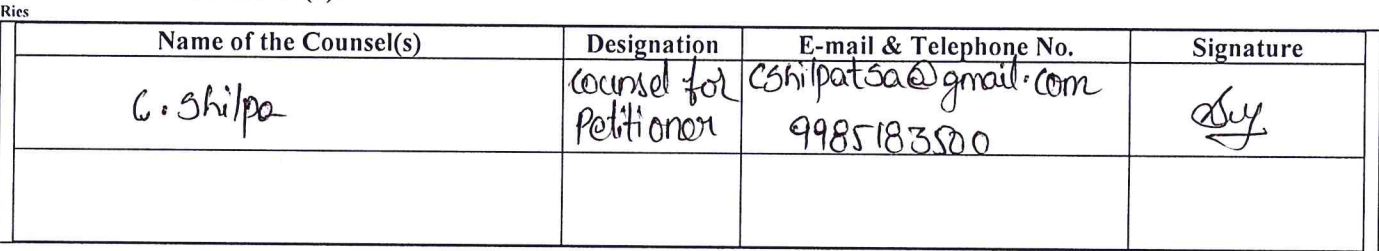 Ries
Name of the Counsel(s) Designation E-mail & Telephone No. Signature
C. Shilpa Counsel for Petitioner cshilpatsa@gmail.com 9985183500